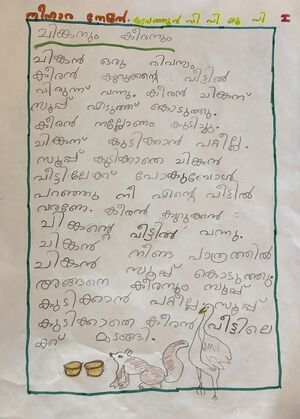 നിഹാര നേമൻ. വി വി യു പി
ചിങ്കനും കീരനും
ചിങ്കൻ ഒരു ദിവസം
കീരൻ കുറുക്കന്റെ വീട്ടിൽ
വിരുന്ന് വന്നു. കീരൻ ചിങ്കന്
സൂപ്പ് എടുത്ത് കൊടുത്തു.
കീരൻ നല്ലോണം കുടിച്ചു.
ചിങ്കന് കുടിക്കാൻ പറ്റീല്ല.
സൂപ്പ് കുടിക്കാതെ ചിങ്കൻ
വീട്ടിലേക്ക് പോകുമ്പോൾ
പറഞ്ഞു നീ എന്റെ വീട്ടിൽ
വരണേ. കീരൻ കുറുക്കൻ
ചിങ്കന്റെ വീട്ടിൽ വന്നു.
ചിങ്കൻ നീണ്ട പാത്രത്തിൽ
സൂപ്പ് കൊടുത്തു.
അങ്ങനെ കീരനും സൂപ്പ്
കുടിക്കാൻ പറ്റീല്ല സൂപ്പ്
കുടിക്കാതെ കീരൻ വീട്ടിലെ
ക്ക് മടങ്ങി.